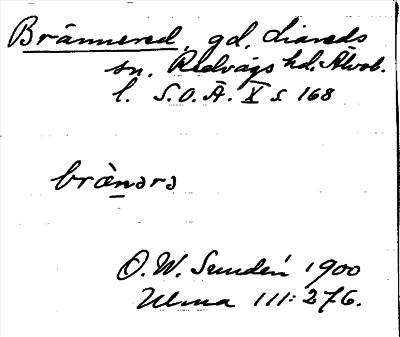 Brännered, gd, Liareds
sn. Redvägs hd. Älvsb.
l. S.O.Ä. X s 168
brànərə
O. W. Sundén 1900
Ulma 111:276.